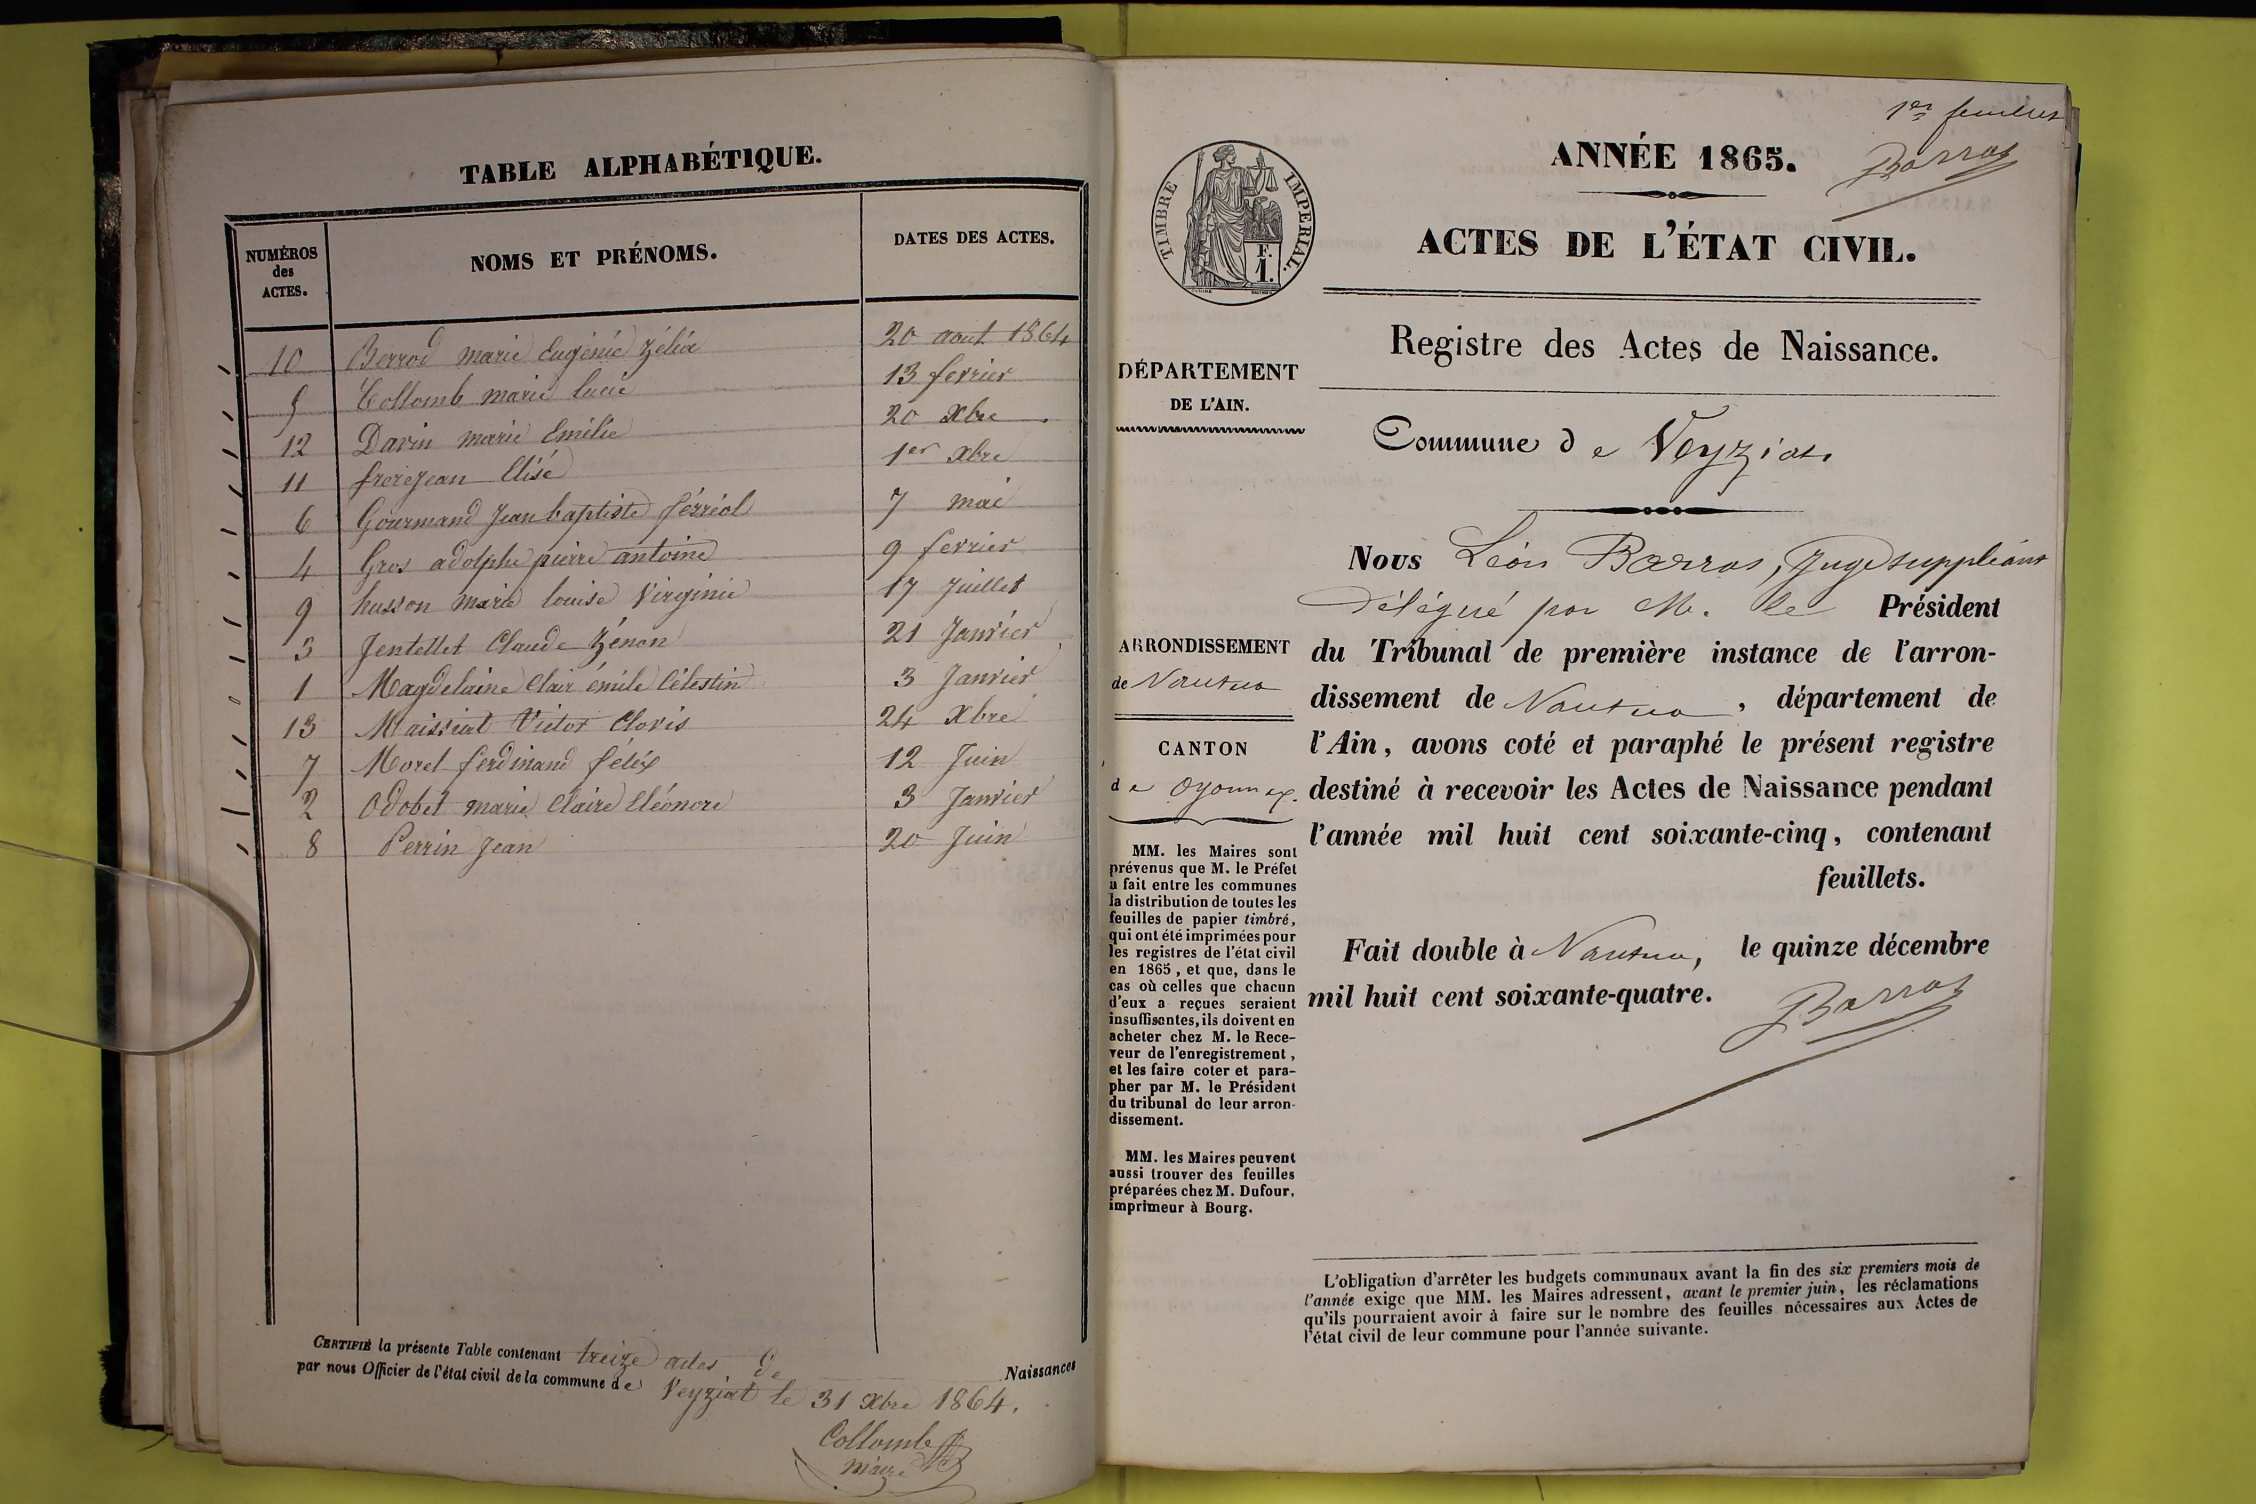 TABLE ALPHABÉTIQUE.
NUMÉROS des ACTES. NOMS ET PRÉNOMS. DATES DES ACTES.
10 Berrod marie Eugénie Zélia 20 aout 1864
5 Collomb marie lucie 13 fevrier
12 Darin marie Emilie 20 Xbre
11 frerejean Elisé 1er Xbre
6 Gourmand Jean baptiste férréol 7 mai
4 Gros adolphe pierre antoine 9 fevrier
9 husson marie louise Virginie 17 Juillet
3 Jentellet Claude Zénon 21 Janvier
1 Magdelaine Clair émile Célestin 3 Janvier
13 Maissiat Victor Clovis 24 Xbre
7 Morel ferdinand félix 12 Juin
2 Odobet marie Claire Eléonore 3 Janvier
8 Perrin Jean 20 Juin
CERTIFIÉ la présente Table contenant treize actes de Naissances
par nous Officier de l'état civil de la commune de Veyziat le 31 Xbre 1864.
Collomb
maire
1er feuillet
Barras
TIMBRE IMPERIAL.
F.
1.
ANNÉE 1865.
ACTES DE L'ÉTAT CIVIL.
Registre des Actes de Naissance.
DÉPARTEMENT
DE L'AIN.
Commune de Veyziat.
ARRONDISSEMENT
de Nantua
CANTON
de Oyonnax.
MM. les Maires sont
prévenus que M. le Préfet
a fait entre les communes
la distribution de toutes les
feuilles de papier timbré,
qui ont été imprimées pour
les registres de l'état civil
en 1865, et que, dans le
cas où celles que chacun
d'eux a reçues seraient
insuffisantes, ils doivent en
acheter chez M. le Rece-
veur de l'enregistrement,
et les faire coter et para-
pher par M. le Président
du tribunal de leur arron-
dissement.
MM. les Maires peuvent
aussi trouver des feuilles
préparées chez M. Dufour,
imprimeur à Bourg.
Nous Léon Barras, Juge suppléant
délégué par M. le Président
du Tribunal de première instance de l'arron-
dissement de Nantua, département de
l'Ain, avons coté et paraphé le présent registre
destiné à recevoir les Actes de Naissance pendant
l'année mil huit cent soixante-cinq, contenant
feuillets.
Fait double à Nantua, le quinze décembre
mil huit cent soixante-quatre.
Barras
L'obligation d'arrêter les budgets communaux avant la fin des six premiers mois de
l'année exige que MM. les Maires adressent, avant le premier juin, les réclamations
qu'ils pourraient avoir à faire sur le nombre des feuilles nécessaires aux Actes de
l'état civil de leur commune pour l'année suivante.